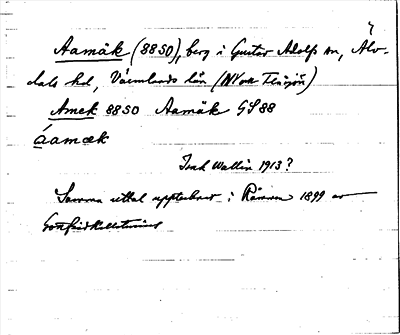 Aamäk (88SO), berg i Gustav Adolfs sn, Älv-
dals hd, Värmlands län (NV om Tisjön)
Amek 88SO Aamäk GS88
áamæk
Isak Wallin 1913?
Samma uttal upptecknat i Rämmen 1899 av
Gottfrid Kallstenius